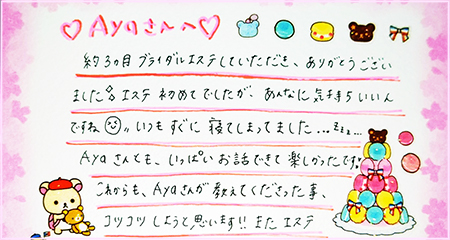 ♡Ayaさんへ♡
約3ヶ月ブライダルエステしていただき、ありがとうござい
ました エステ初めてでしたが、あんなに気持ちいいん
ですね いつもすぐに寝てしまってました…zzz…
Ayaさんとも、いっぱいお話できて楽しかったです
これからも、Ayaさんが教えてくださった事、
コツコツしようと思います!! またエステ